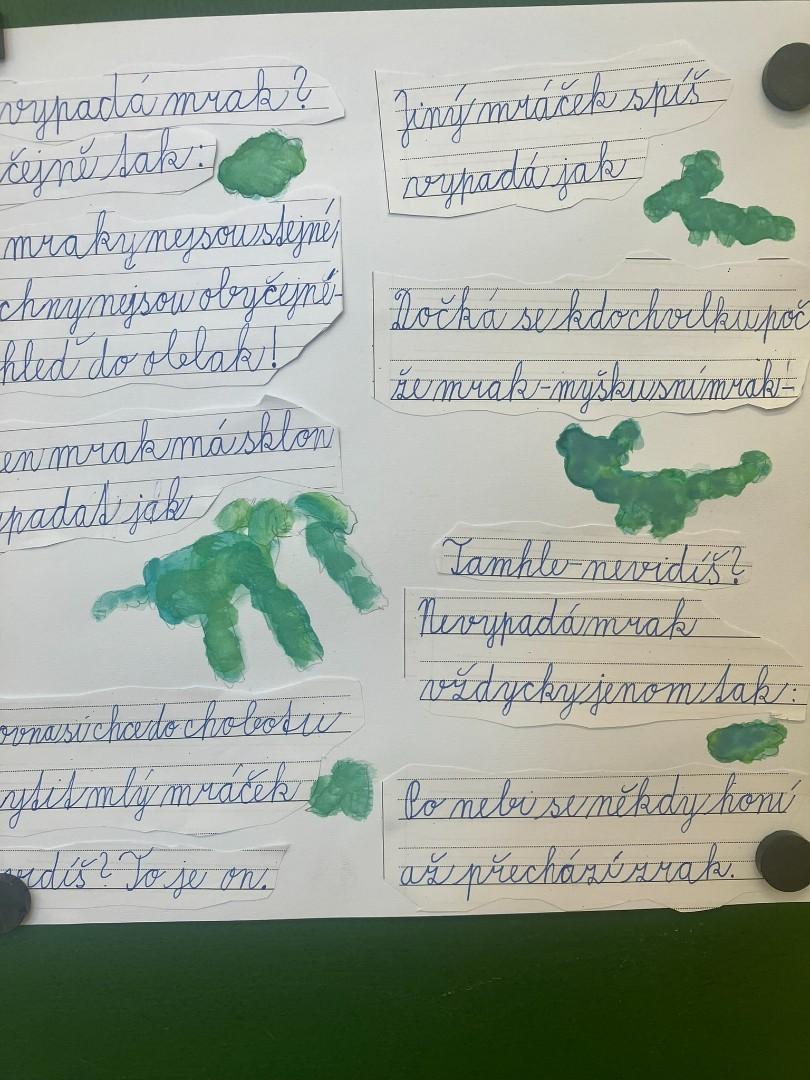 vypadá mrak?
čejně tak:
mraky nejsou stejné,
chny nejsou obyčejné-
hleď do oblak!
en mrak má sklon
ypadat jak
ovna si chce do chobotu
ytit mlý mráček
vidíš? To je on.
Jiný mráček spíš
vypadá jak
Dočká se kdo chvilku poč
že mrak-myšku sní mrak-
Tamhle-nevidíš?
Nevypadá mrak
vždycky jenom tak:
Po nebi se někdy honí
až přechází zrak.